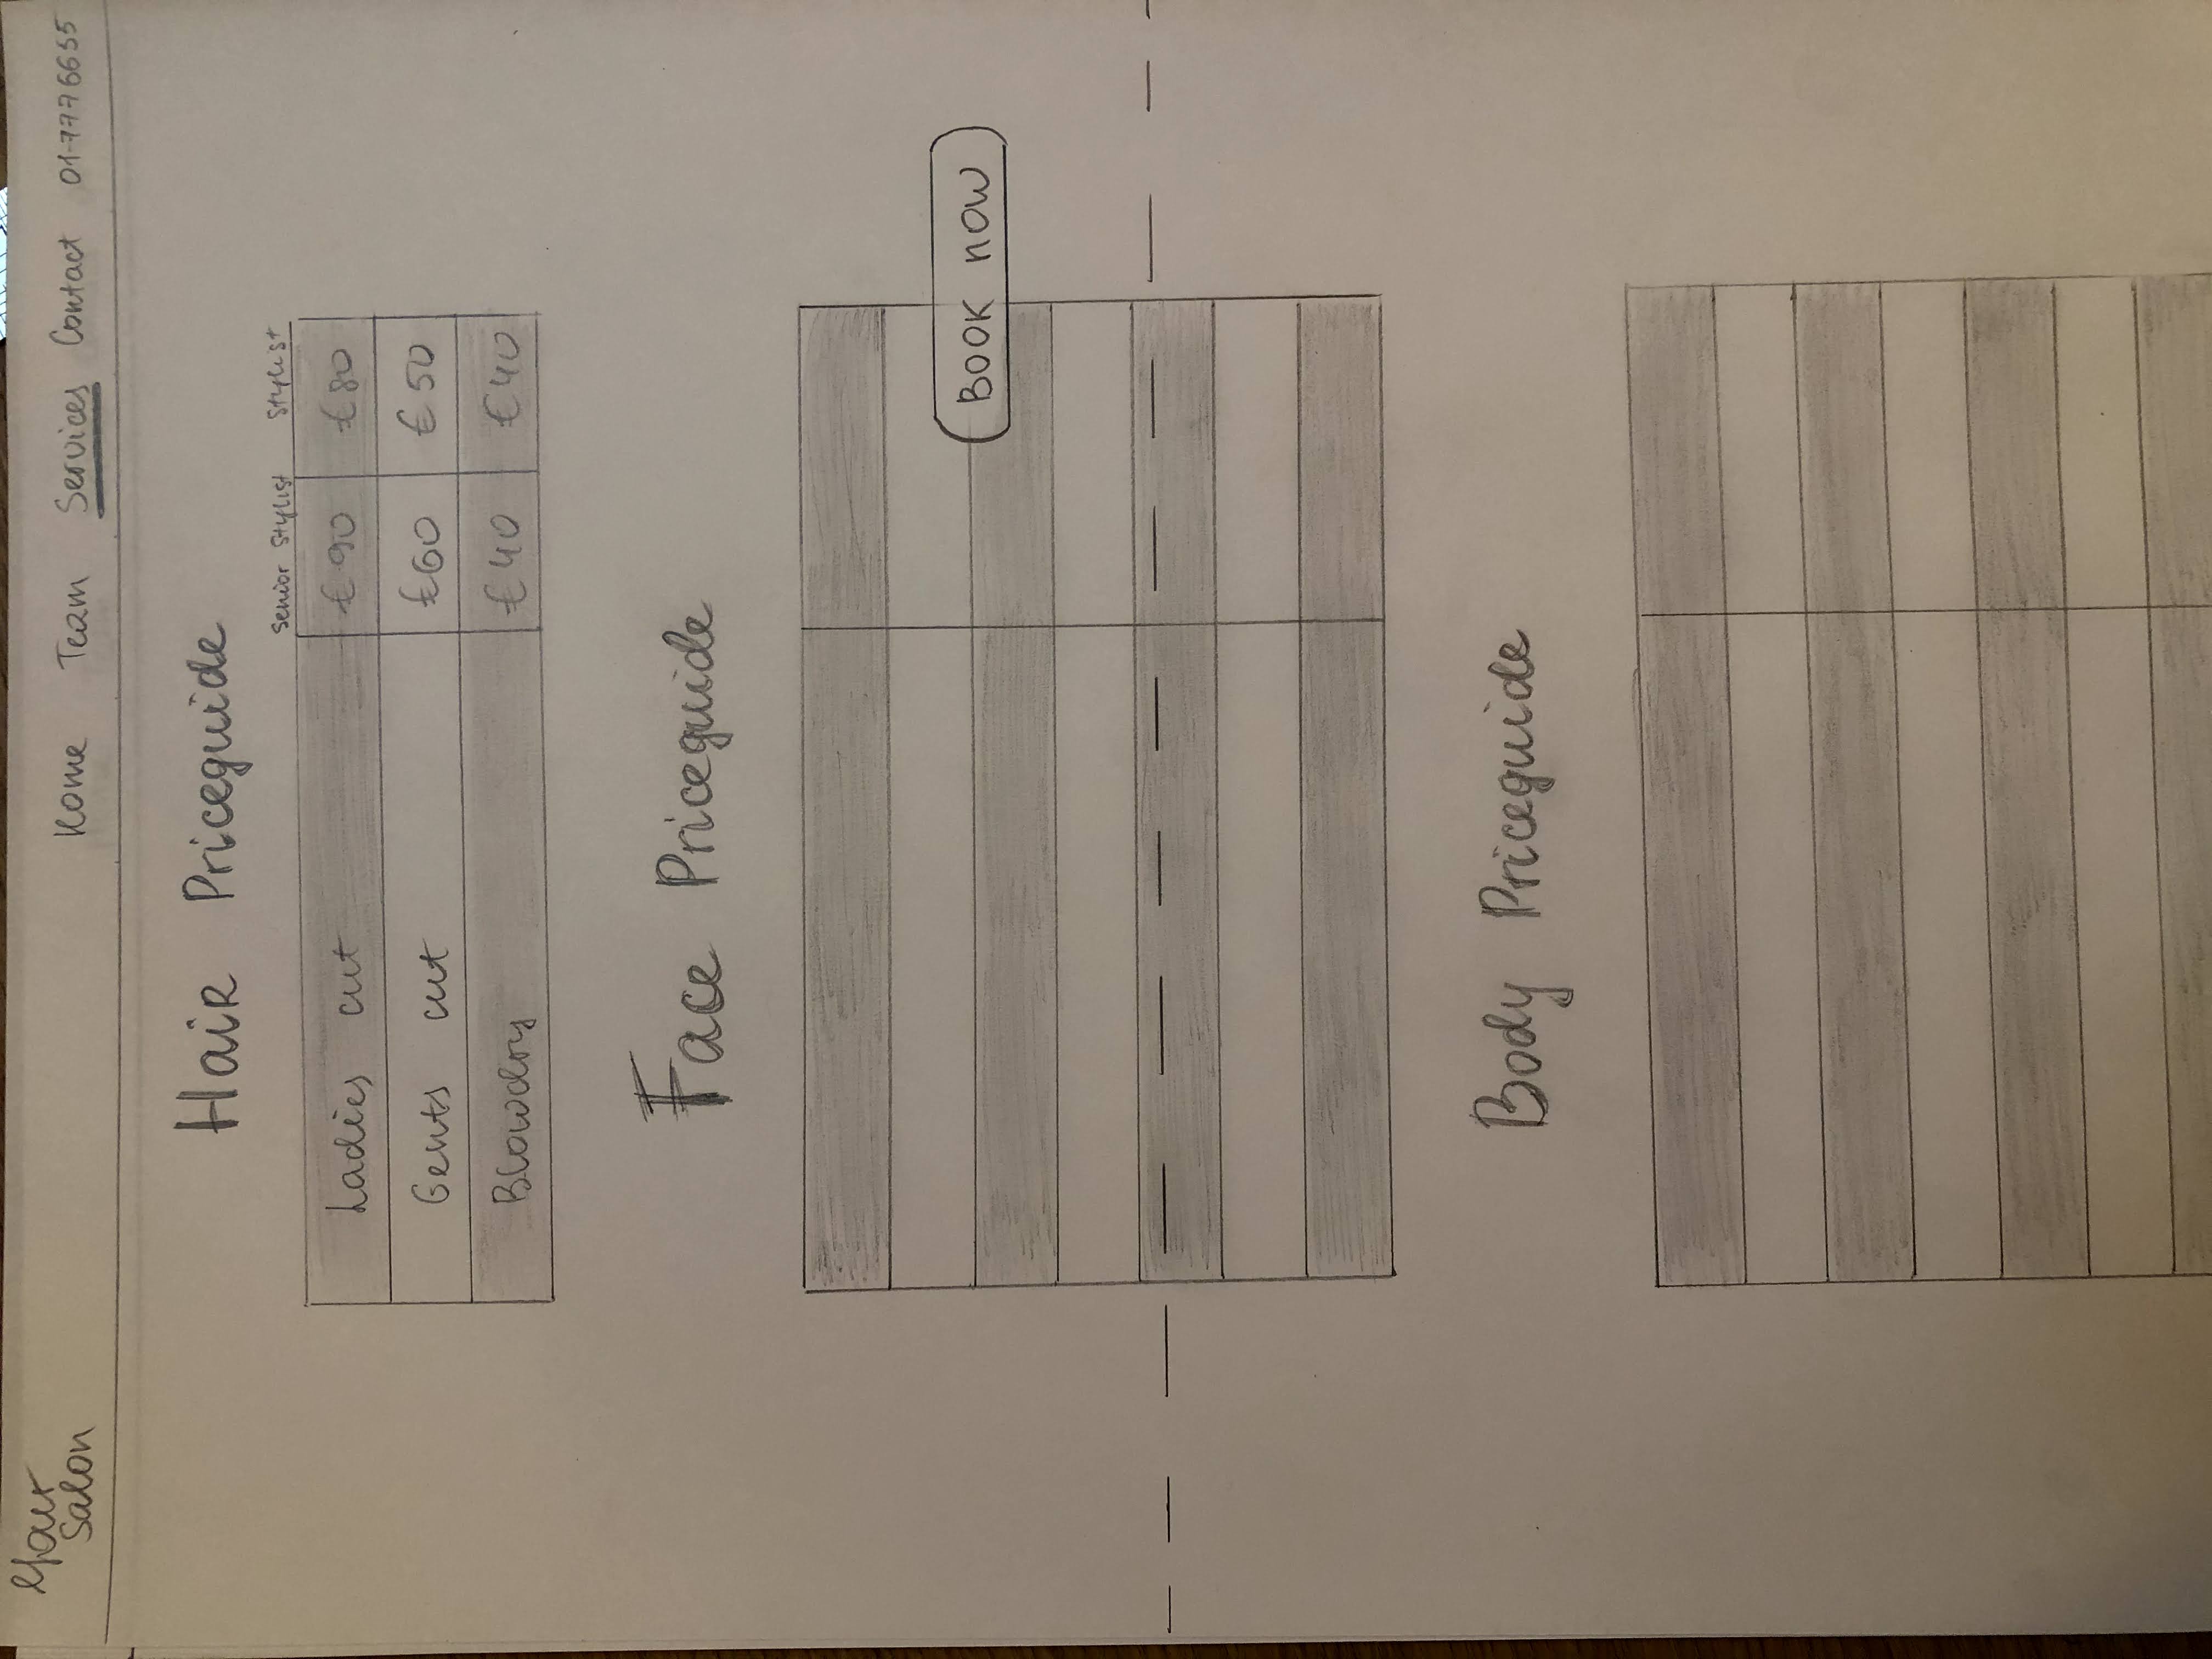 Your
Salon
Home Team Services Contact 01-7776655
Hair Priceguide
Senior Stylist Stylist
Ladies cut €90 €80
Gents cut €60 €50
Blowdry €40 €40
Face Priceguide
BOOK NOW
Body Priceguide